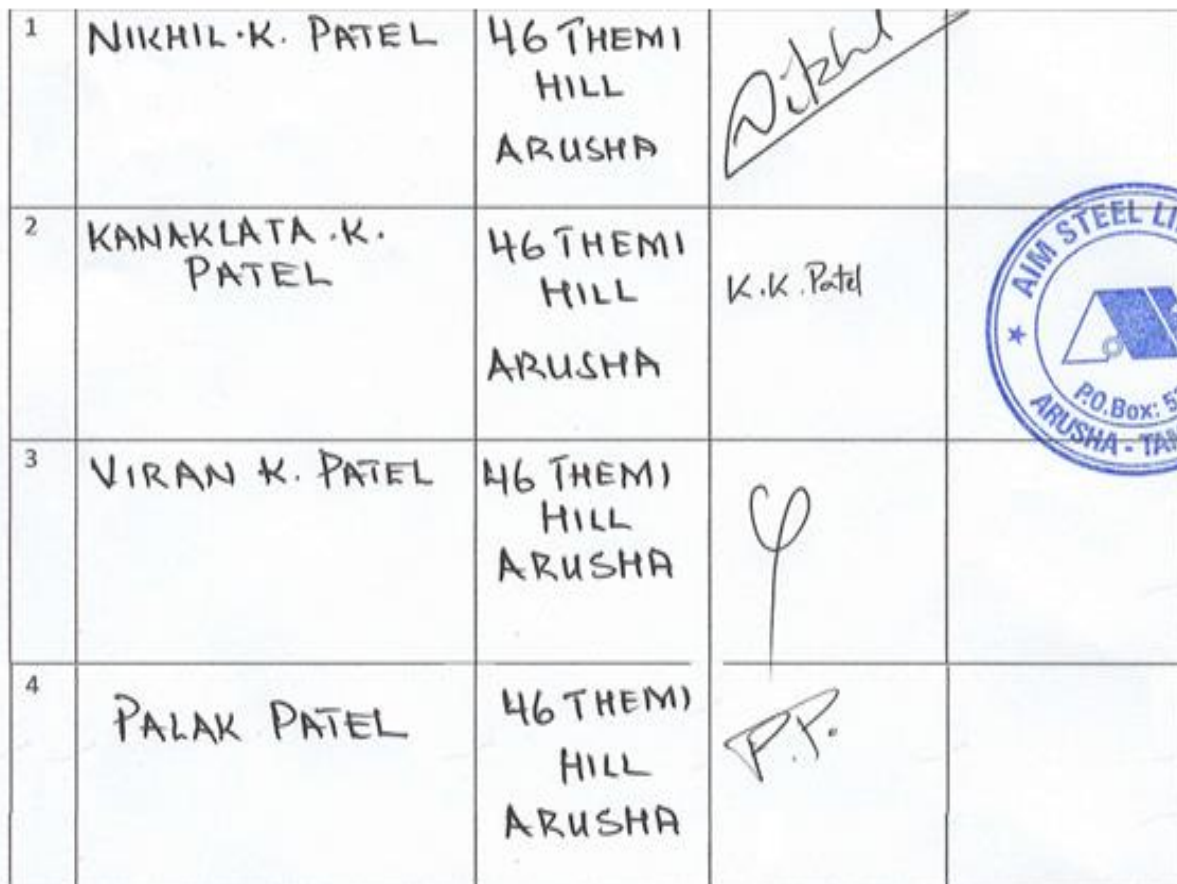 1
NIKHIL.K. PATEL
46 THEMI
HILL
ARUSHA
Nikhil
2
KANAKLATA.K.
PATEL
46 THEMI
HILL
ARUSHA
K.K.Patel
AIM STEEL LI
P.O.Box: 5
ARUSHA - TAN
3
VIRAN K. PATEL
46 THEMI
HILL
ARUSHA
4
PALAK PATEL
46 THEMI
HILL
ARUSHA
P.P.